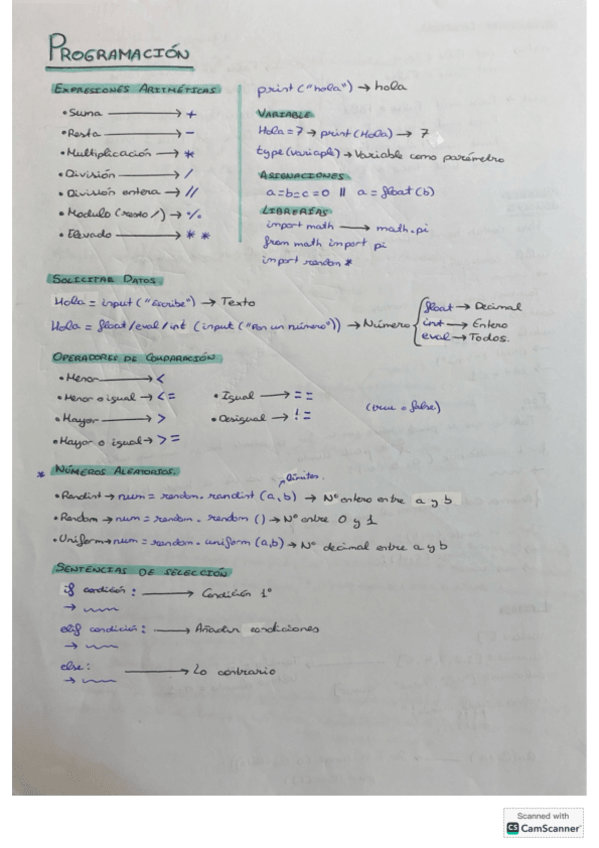 PROGRAMACIÓN
EXPRESIONES ARITMÉTICAS
• Suma → +
• Resta → -
• Multiplicación → *
• División → /
• División entera → //
• Modulo (resto /) → %
• Elevado → * *
print ("hola") → hola
VARIABLE
Hola = 7 → print (Hola) → 7
type (variaple) → Variable como parámetro
ASIGNACIONES
a=b=c=0 || a = float (b)
LIBRERÍAS
import math → math.pi
from math import pi
import random *
SOLICITAR DATOS.
Hola = input ("Escribe") → Texto
Hola = float/eval/int (input ("Pon un número")) → Número
float → Decimal
int → Entero
eval → Todos.
OPERADORES DE COMPARACIÓN
• Menor → <
• Menor o igual → < =
• Mayor → >
• Mayor o igual → > =
• Igual → = =
• Desigual → ! =
(true o false)
* NÚMEROS ALEATORIOS.
límites.
• Randint → num = random. randint (a, b) → Nº entero entre a y b
• Random → num = random. random () → Nº entre 0 y 1
• Uniform → num = random. uniform (a,b) → Nº decimal entre a y b
SENTENCIAS DE SELECCIÓN
if condición : → Condición 1º
→
elif condición : → Añadir condiciones
→
else : → Lo contrario
→
Scanned with
CS CamScanner